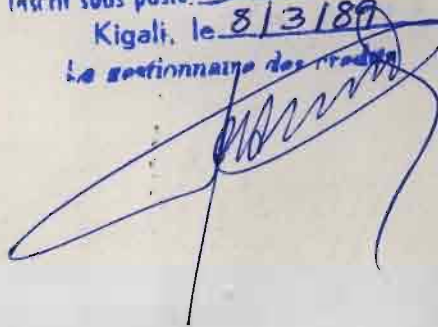 Inscrit sous poste
Kigali, le 8/3/89
Le gestionnaire des